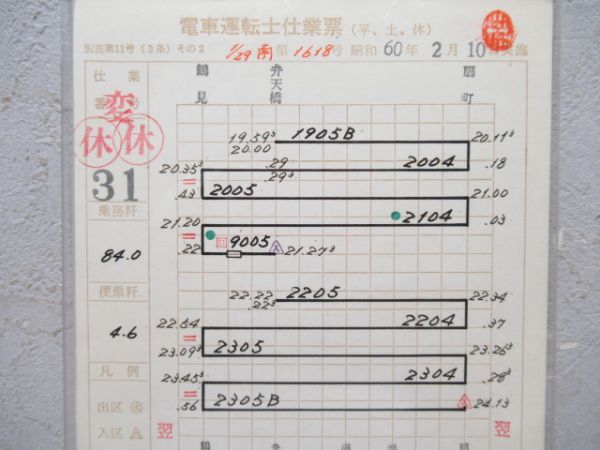 電車運転士仕業票 (平、土、休)
別表第11号 (3条) その2 1/29 南 第1618号 昭和60年2月10日実施
仕業 鶴見 弁天橋 扇町
番号
変
休 休
31
19.59³ 1905B 20.11³
20.00
20.35³ .29 2004 .18
.29³
.43 2005 21.00
21.20 2104 .03
.22 回 9005 入 21.27³
乗務粁
84.0
22.22 2205 22.34
.22³
22.54 2204 .37
便乗粁
4.6
23.09³ 2305 23.26³
23.45³ 2304 .28³
.56 2305B 24.13
凡例
出区
入区 入
翌 翌